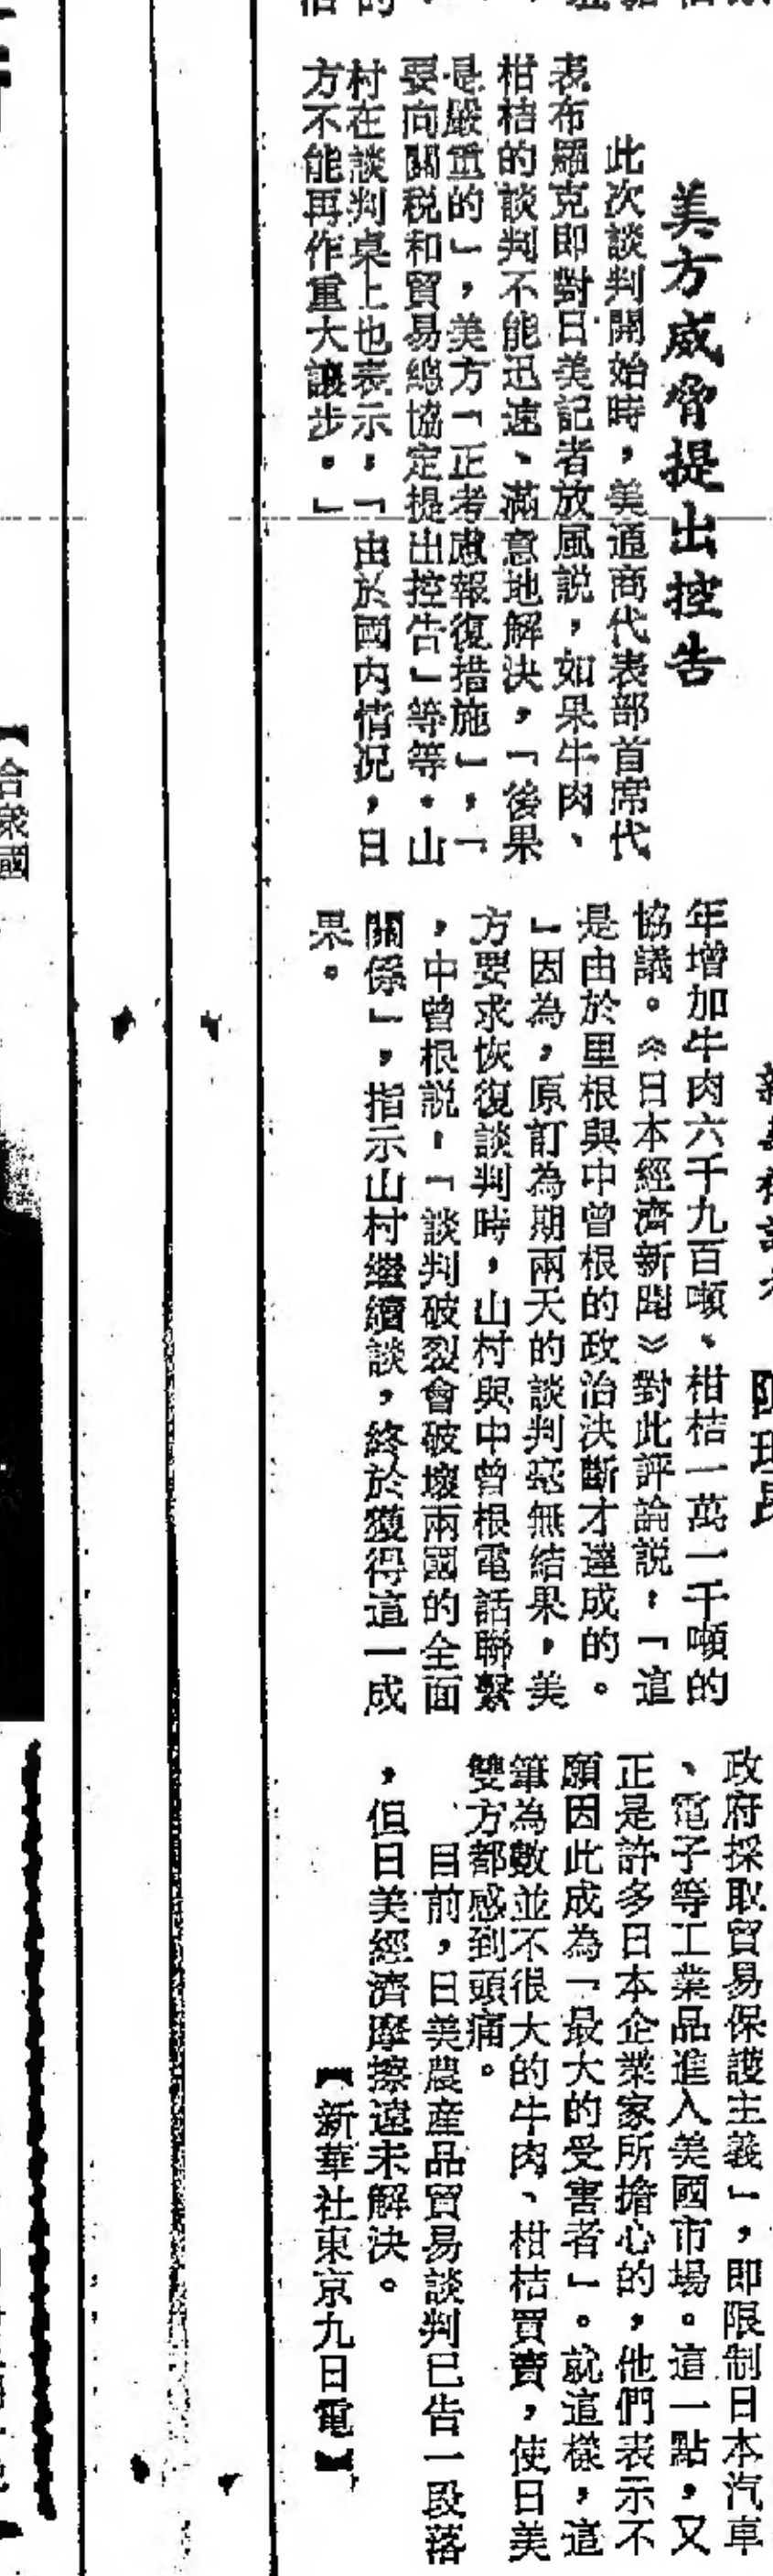 美方威脅提出控告
此次談判開始時，美通商代表部首席代
表布羅克即對日美記者放風説，如果牛肉、
柑桔的談判不能迅速、滿意地解決，「後果
是嚴重的」，美方「正考慮報復措施」，「
要向關税和貿易總協定提出控告」等等。山
村在談判桌上也表示，「由於國内情況，日
方不能再作重大讓步。」
年增加牛肉六千九百噸、柑桔一萬一千噸的
協議。《日本經濟新聞》對此評論説：「這
是由於里根與中曾根的政治決斷才達成的。
」因為，原訂為期兩天的談判毫無結果，美
方要求恢復談判時，山村與中曾根電話聯繫
，中曾根説：「談判破裂會破壞兩國的全面
關係」，指示山村繼續談，終於獲得這一成
果。
政府採取貿易保護主義」，即限制日本汽車
、電子等工業品進入美國市場。這一點，又
正是許多日本企業家所擔心的，他們表示不
願因此成為「最大的受害者」。就這樣，這
筆為數並不很大的牛肉、柑桔買賣，使日美
雙方都感到頭痛。
目前，日美農產品貿易談判已告一段落
，但日美經濟摩擦遠未解決。
【新華社東京九日電】
【合衆國